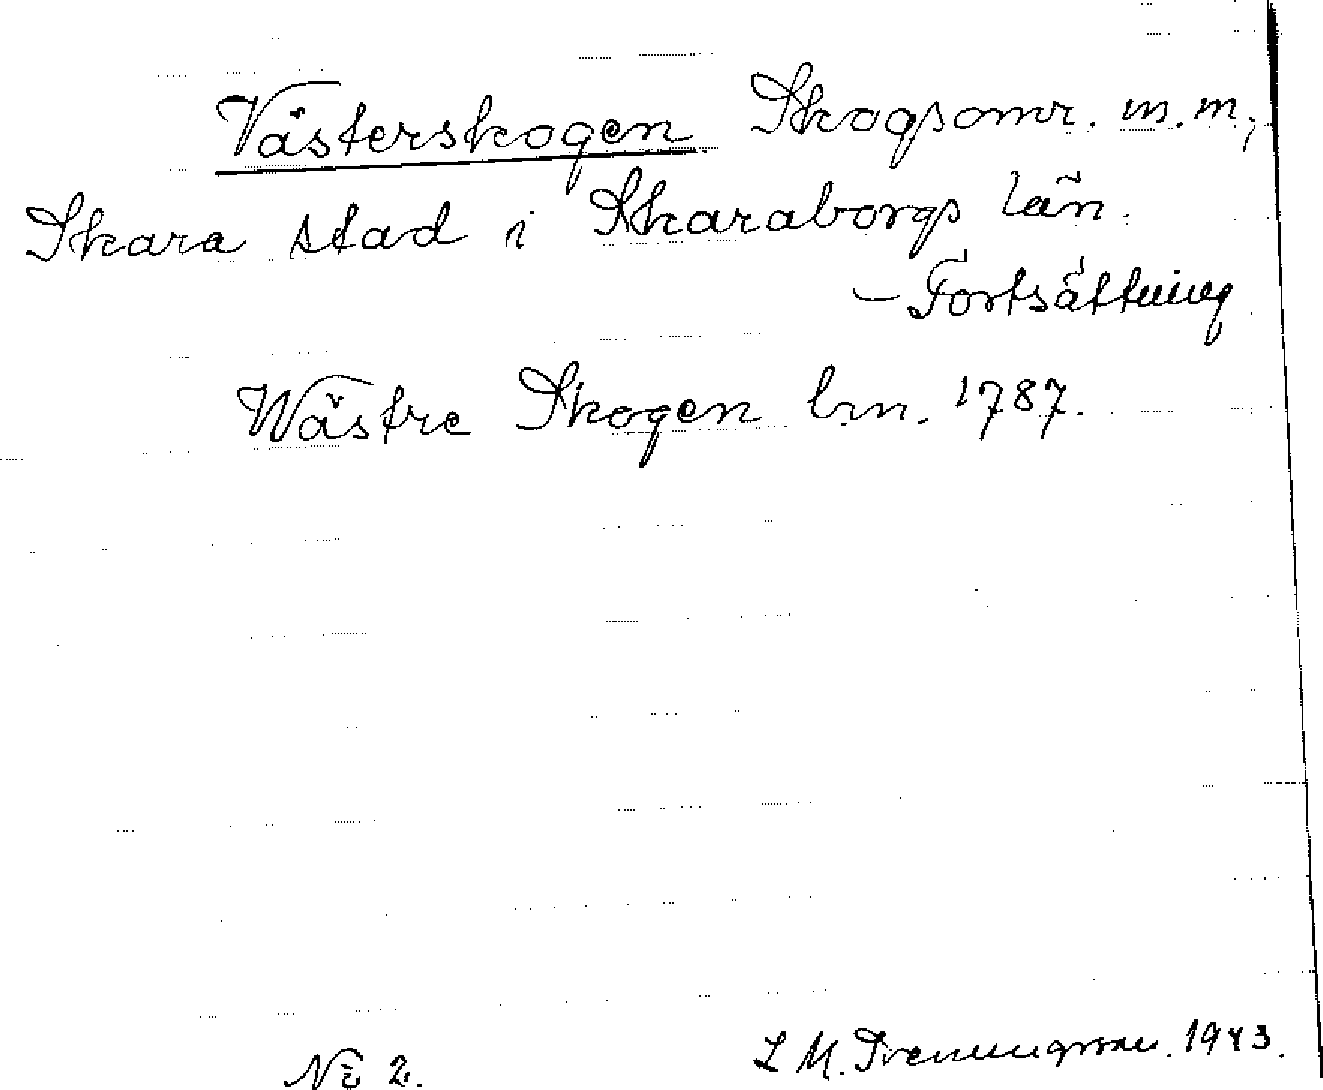 Västerskogen Skogsomr. m.m,
Skara stad i Skaraborgs län.
– Fortsättning
Wästre Skogen brn. 1787.
NE 2.
L M. Svenungsson. 1943.